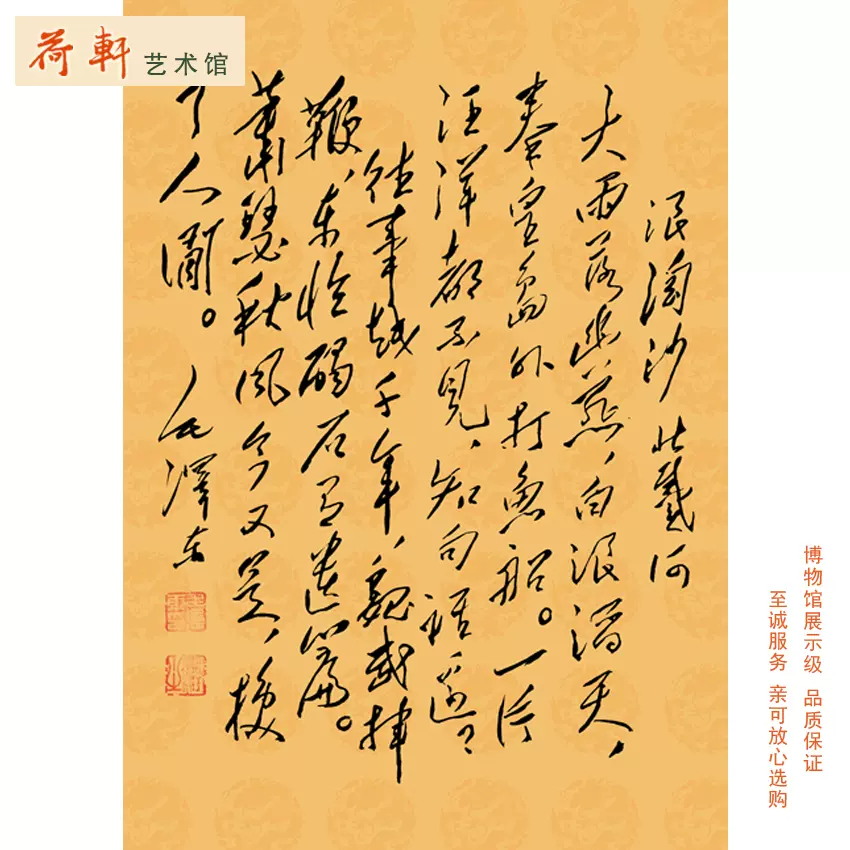 荷軒 艺术馆
浪淘沙 北戴河
大雨落幽燕，白浪滔天，
秦皇島外打魚船。一片
汪洋都不見，知向誰邊
往事越千年，魏武揮
鞭，東臨碣石有遺篇。
蕭瑟秋風今又是，換
了人間。
毛澤东
博物馆展示级 品质保证
至诚服务 亲可放心选购